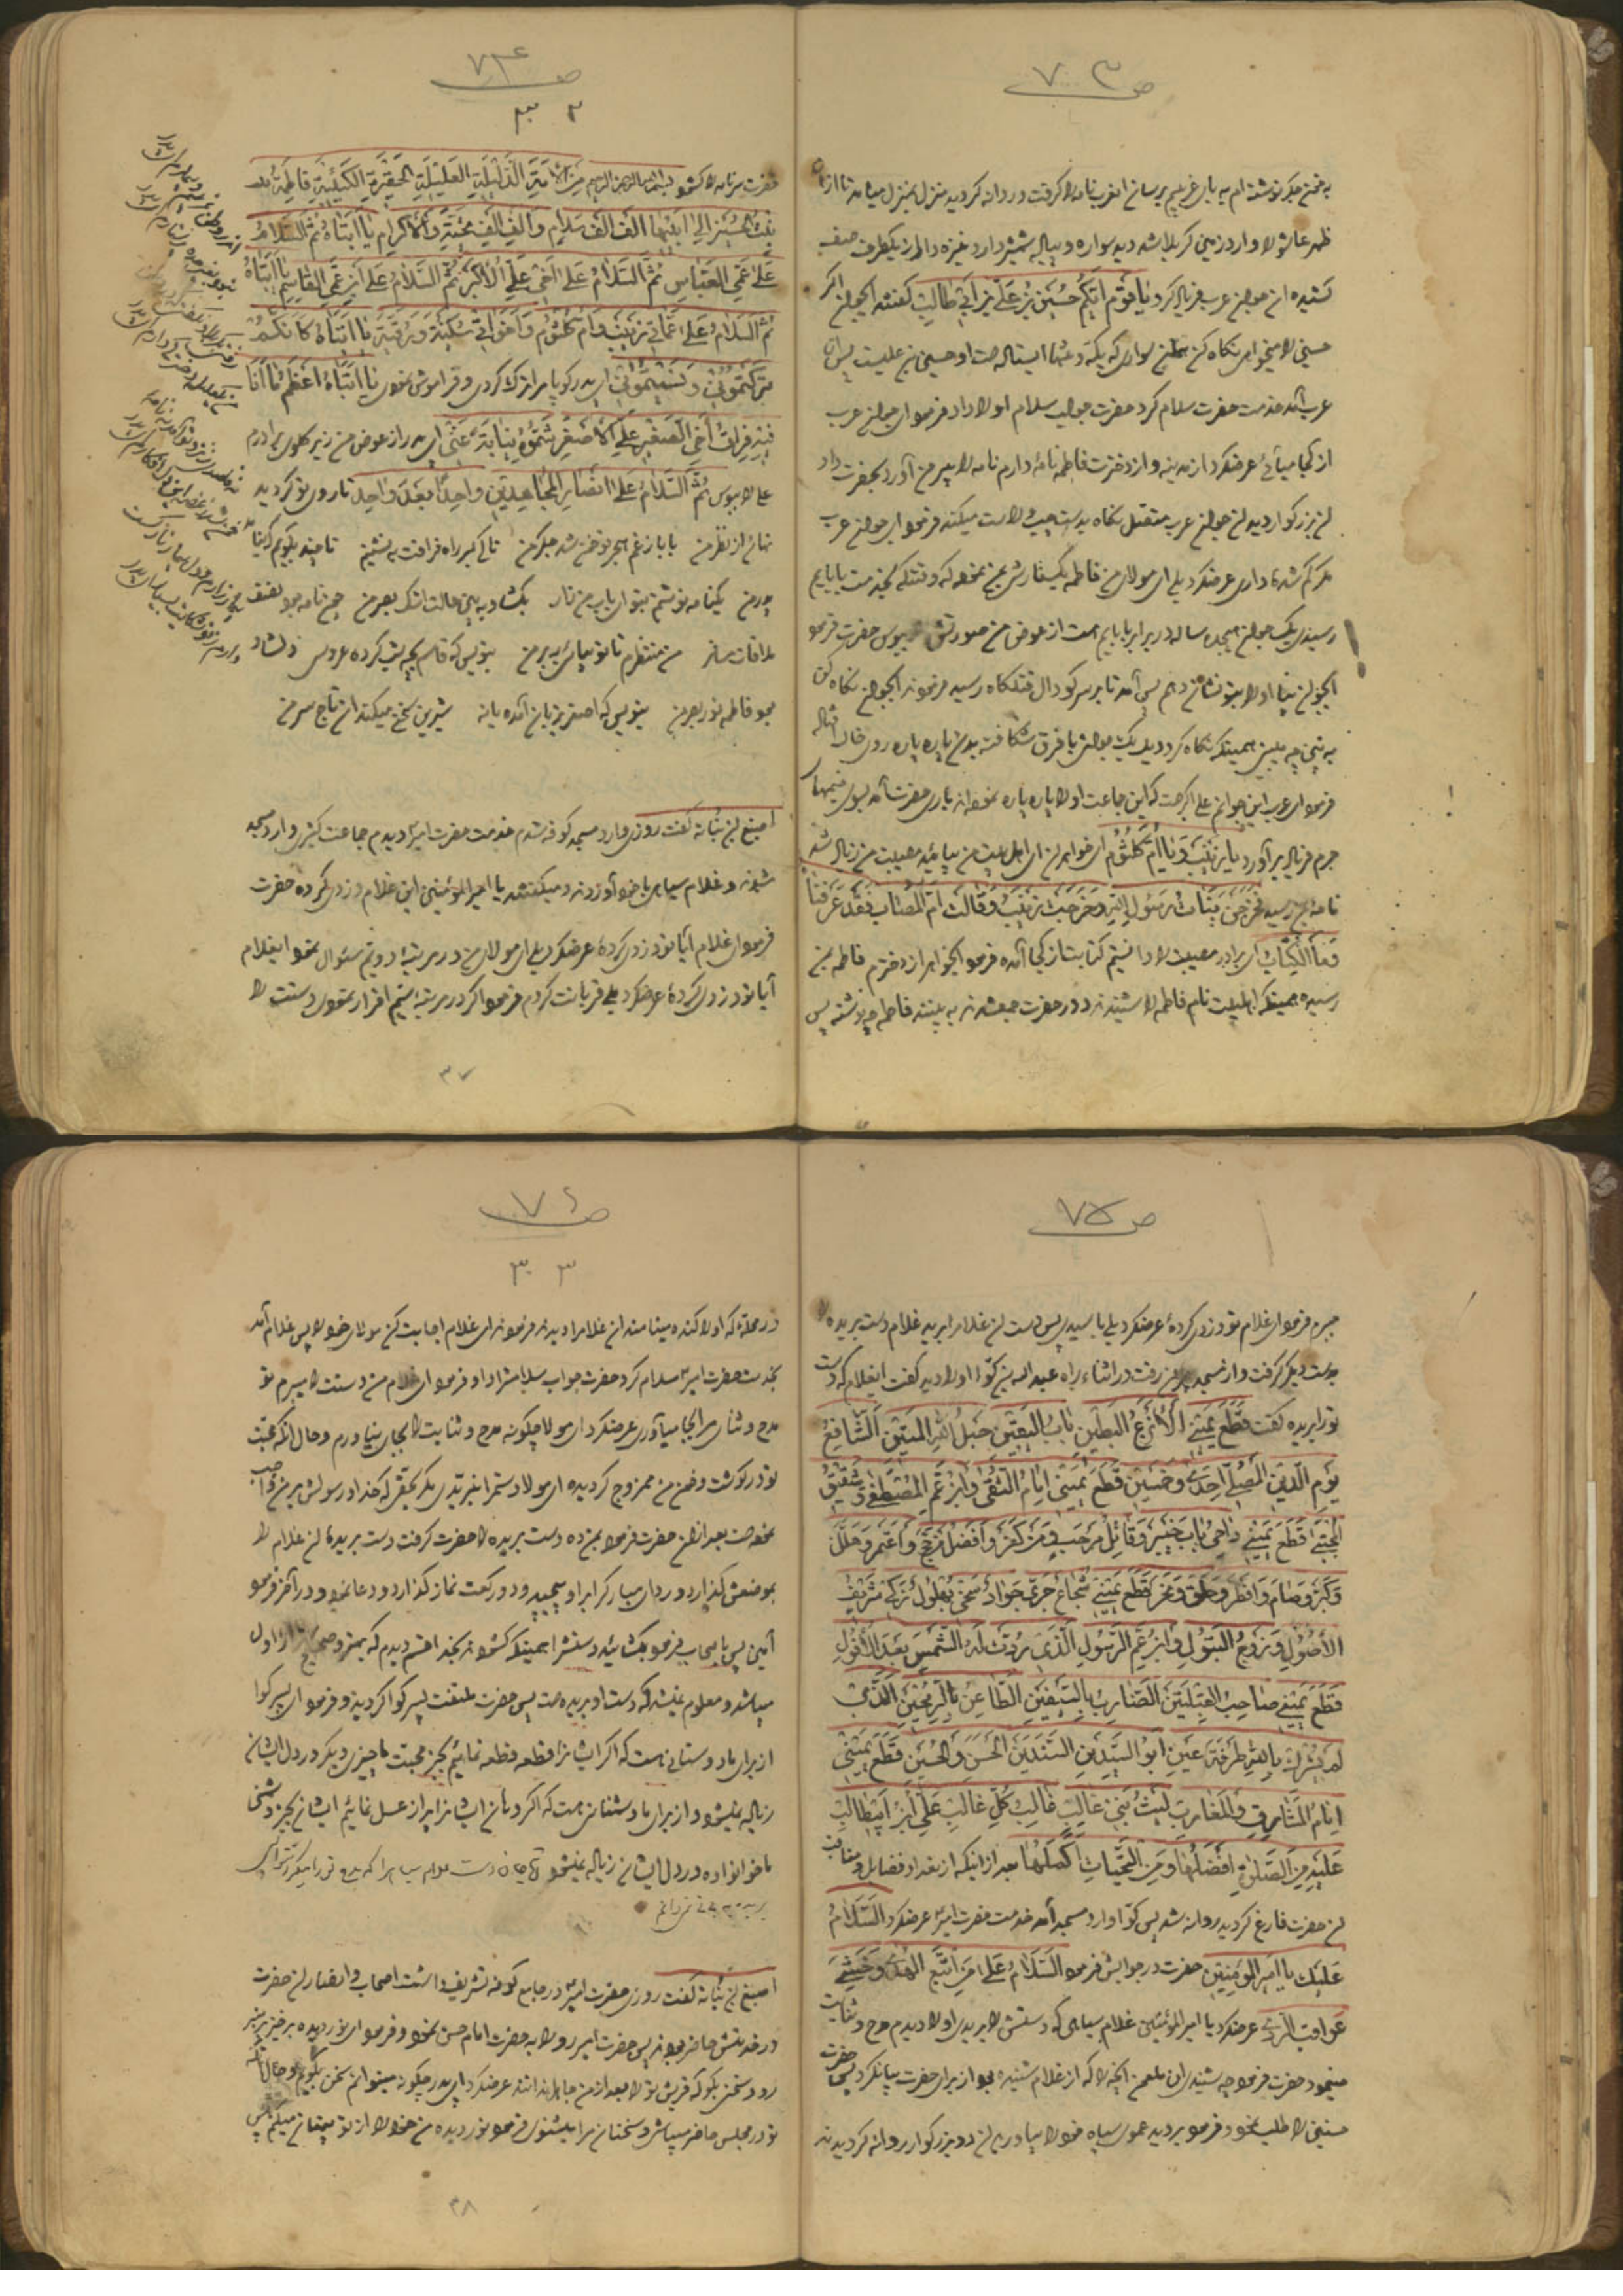 ص ۷۳
به خون جگر نوشته ام به بابای غریبم برسان اعرب نامه را گرفت و روانه گردید منزل بمنزل میامد تا از
ظهر عاشورا وارد زمین کربلا شد دید سواره و پیاده شمشیر دار و نیزه دار از یکطرف صف
کشیده ان جوان عرب فریاد کرد یا قَوْمِ اَیُّکُمْ حُسَیْنِ بْنِ عَلِیِّ بْنِ اَبیٖ طالِبٍ گفتند ایجوان اگر
حسین را میخواهی نگاه کن بان سواری که یکه و تنها ایستاده است او حسین بن علیست پس ان
عرب آمد خدمت حضرت سلام کرد حضرت جواب سلام او را داد فرمود ای جوان عرب
از کجا میآئی عرضکرد از مدینه و از دخترت فاطمه نامه دارم نامه را بیرون آورد بحضرت داد
ان بزرگوار دید ان جوان عرب متصل نگاه بدست چپ و راست میکند فرمود ای جوان عرب
مگر گم شده داری عرضکرد بلی ای مولای من فاطمه یکسفارش بمن نموده که وقتیکه بخدمت بابایم
رسیدی یک جوان هیجده ساله در برابر بابایم هست از عوض من صورتش ببوس حضرت فرمود
ایجوان بیا او را بتو نشان دهم پس آمد تا بر سر گودال قتلگاه رسید فرمود ایجوان نگاه کن
به بین چه میبینی همینکه نگاه کرد دید یک جوانی با فرق شکافته بدن پاره پاره روی خاک افتاده
فرمود ای عرب این جوانم علی اکبر است که این جماعت او را پاره پاره نموده اند باری حضرت آمد بسوی خیمهای
حرم فریاد برآورد یا زَیْنَبُ وَ یا اُمَّ کُلْثُومٍ ای خواهران ای اهل بیت من بیائید مصیبت من زیاد شد
نامه بمن رسید فَخَرَجْنَ بَناتُ رَسُولِ اللهِ وَ خَرَجَتْ زَیْنَبُ وَ قالَتْ اَمَّا الْمُصابُ فَقَدْ عَرَفْنا
فَمَا الْکِتابُ ای برادر مصیبت را دانستیم کتابت از کجا آمده فرمود ایخواهر از دخترم فاطمه بمن
رسیده همینکه اهلبیت نام فاطمه را شنیدند دور حضرت جمعشدند به بینند فاطمه چه نوشته پس
ص ۷۴
۳۲
حضرت سر نامه را گشود بسم الله الرحمن الرحیم مِنَ الْاَمَةِ الذَّلیٖلَةِ الْعَلیٖلَةِ الْحَقیٖرَةِ الْکَئیٖبَةِ فاطِمَةَ
بِنْتِ الْحُسَیْنِ اِلیٰ اَبیٖها اَلْفَ اَلْفَ سَلامٍ وَ اَلْفَ اَلْفَ تَحِیَّةٍ وَ الْاِکْرامِ یا اَبَتاهُ ثُمَّ السَّلامُ
عَلیٰ عَمِّیَ الْعَبّاسِ ثُمَّ السَّلامُ عَلیٰ اَخیٖ عَلِیٍّ الْاَکْبَرِ ثُمَّ السَّلامُ عَلیٰ اِبْنِ عَمِّیَ الْقاسِمِ یا اَبَتاهُ
ثُمَّ السَّلامُ عَلیٰ عَمّاتیٖ زَیْنَبَ وَ اُمِّ کُلْثُومٍ وَ اَخَواتیٖ سُکَیْنَةَ وَ رُقَیَّةَ یا اَبَتاهُ کَاَنَّکُمْ
تَرَکْتُمُونیٖ وَ نَسیٖتُمُونیٖ ای پدر گویا مرا ترک کردی و فراموش نمودی یا اَبَتاهُ اَعْظَمُ ما اَنَا
فیٖهِ فِراقُ اَخِی الصَّغیٖرِ عَلِیِّ الْاَصْغَرِ شَمُّوهُ نِیابَةً عَنّیٖ ای پدر از عوض من زیر گلوی برادرم
علی را ببوس ثُمَّ السَّلامُ عَلیٰ اَنْصارِ الْمُجاهِدیٖنَ واحِدًا بَعْدَ واحِدٍ تا روی تو گردید
نهان از نظر من بابا ز غم هجر تو خون شد جگر من تا کی بسر راه فراقت بنشینم تا چند بگویم که نیامد
پدر من یکنامه نوشتم بتو ای باب من زار بگشا و به بین حالت اشک بصر من چون نامه بود نصف
ملاقات مسافر من منتظرم تا تو بیائی ببر من بنویس که قاسم بچه شب کرده عروسی دلشاد
بود فاطمه نور بصر من بنویس که اصغر بزبان آمده یا نه شیرین سخن میکند ان تاج سر من
اصبغ بن نباته گفت روزی وارد مسجد کوفه شدم خدمت حضرت امیر دیدم جماعت کثیری وارد مسجد
شدند و غلام سیاهی با خود آوردند و میگفتند یا امیرالمؤمنین این غلام دزدی کرده حضرت
فرمود ای غلام آیا تو دزدی کردهٔ عرضکرد بلی ای مولای من در مرتبهٔ دویم سئوال نمود ایغلام
آیا تو دزدی کردهٔ عرضکرد بلی فربانت گردم فرمود اگر در مرتبه سیم اقرار نمودی دستت را
۳۷
ص ۷۵
میبرم فرمود ای غلام تو دزدی کردهٔ عرضکرد بلی یا سیدی پس دست ان غلام را برید غلام دست بریده را
بدست دیگر گرفت و از مسجد بیرون رفت در اثناء راه عبدالله بن کوّا او را دید گفت ایغلام که دست
تو را بریده گفت قَطَعَ یَمیٖنیٖ اَلْاَنْزَعُ الْبَطیٖنُ بابُ الْیَقیٖنِ حَبْلُ اللهِ الْمَتیٖنُ اَلشّافِعُ
یَوْمَ الدّیٖنِ الْمُصَلّیٖ اِحْدیٰ وَ خَمْسیٖنَ قَطَعَ یَمیٖنیٖ اِمامُ التُّقیٰ وَ ابْنُ عَمِّ الْمُصْطَفیٰ شَقیٖقُ
الْمُجْتَبیٰ قَطَعَ یَمیٖنیٖ داحیٖ بابِ خَیْبَرَ وَ قاتِلُ مَرْحَبٍ وَ مَنْ کَفَرَ وَ اَفْضَلُ مَنْ حَجَّ وَ اعْتَمَرَ وَ هَلَّلَ
وَ کَبَّرَ وَ صامَ وَ اَفْطَرَ وَ حَلَقَ وَ نَحَرَ قَطَعَ یَمیٖنیٖ شُجاعٌ جَرِیٌّ جَوادٌ سَخِیٌّ بُهْلُولٌ زَکِیٌّ شَریٖفُ
الْاُصُولِ وَ زَوْجُ الْبَتُولِ وَ ابْنُ عَمِّ الرَّسُولِ الَّذیٖ رُدَّتْ لَهُ الشَّمْسُ بَعْدَ الْاُفُولِ
قَطَعَ یَمیٖنیٖ صاحِبُ الْقِبْلَتَیْنِ اَلضّارِبُ بِالسَّیْفَیْنِ الطّاعِنُ بِالرُّمْحَیْنِ الَّذیٖ
لَمْ یُشْرِکْ بِاللهِ طَرْفَةَ عَیْنٍ اَبُو السَّیِّدَیْنِ السَّنَدَیْنِ الْحَسَنِ وَ الْحُسَیْنِ قَطَعَ یَمیٖنیٖ
اِمامُ الْمَشارِقِ وَ الْمَغارِبِ لَیْثُ بَنیٖ غالِبٍ غالِبُ کُلِّ غالِبٍ عَلِیُّ ابْنُ اَبیٖطالِبٍ
عَلَیْهِ مِنَ الصَّلوٰةِ اَفْضَلُها وَ مِنَ التَّحِیّاتِ اَکْمَلُها بعد از اینکه از تعداد فضایل و مناقب
ان حضرت فارغ گردید روانه شد پس کوّا وارد مسجد آمد خدمت حضرت امیر عرضکرد اَلسَّلامُ
عَلَیْکَ یا اَمیٖرَ الْمُؤْمِنیٖنَ حضرت در جوابش فرمود اَلسَّلامُ عَلیٰ مَنِ اتَّبَعَ الْهُدیٰ وَ خَشِیَ
عَواقِبَ الرَّدیٰ عرضکرد یا امیرالمؤمنین غلام سیاهی که دستش را بریدی او را دیدم مدح و ثنایت
مینمود حضرت فرمود چه شنیدی ان ملعون آنچه را که از غلام شنیده بود از برای حضرت بیان کرد پس حضرت
حسنین را طلب نمود و فرمود بروید عموی سیاه خود را بیاورید ان دو بزرگوار روانه گردیدند
ص ۷۶
۳۳
در محله که او را کنده مینامند ان غلام را دیدند فرمودند ای غلام اجابت کن مولای خود را پس غلام آمد
بخدمت حضرت امیر سلام کرد حضرت جواب سلامش را داد و فرمود ای غلام من دستت را میبرم تو
مدح و ثنای مرا بجا میآوری عرضکرد ای مولا چگونه مدح و ثنایت را بجای نیاورم و حال آنکه محبت
تو در گوشت و خون من ممزوج گردیده ای مولا دستم را نبریدی مگر بحقی که خدا و رسولش بر من واجب
نموده است بعد از ان حضرت فرمود بمن ده دست بریده را حضرت گرفت دست بریدهٔ ان غلام را
بموضعش گذارد و ردای مبارک را بر او پیچید و دو رکعت نماز گذارد و دعا نمود و در آخر فرمود
آمین پس باصحاب فرمود بگشائید دستش را همینکه گشودند بخدا قسم دیدم که بهتر و صحیح تر از اول
میباشد و معلوم نمیشد که دست او بریده است پس حضرت ملتفت پسر کوّا گردید و فرمود ای پسر کوا
از برای ما دوستانی هست که اگر ایشان را قطعه قطعه نمائیم بجز محبت ما چیزی دیگر در دل ایشان
زیاد نمیشود و از برای ما دشمنان هست که اگر دهان ایشان را پر از عسل نمائیم ایشان بجز دشمنی
ما خانواده در دل ایشان زیاد نمیشود
اصبغ بن نباته گفت روزی حضرت امیر در جامع کوفه تشریف داشت اصحاب و انصار ان حضرت
در خدمتش حاضر بودند پس حضرت امیر رو را به حضرت امام حسن نمود و فرمود ای نور دیده برخیز بر منبر
رو و سخنی بگو که قریش تو را بعد از من جاهل ندانند عرضکرد ای پدر چگونه میتوانم سخن بگویم و حال آنکه
تو در مجلس حاضر میباشی و سخنان مرا میشنوی فرمود نور دیده من خود را از تو پنهان میکنم پس
۳۸